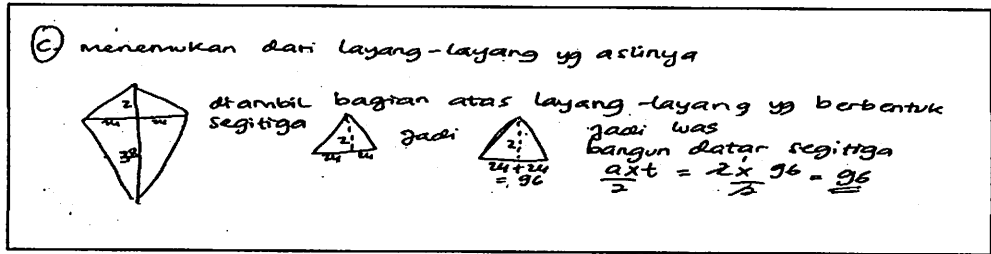 c. menemukan dari layang-layang yg aslinya
2
24 24
32
diambil bagian atas layang-layang yg berbentuk
segitiga
2
24 24
jadi
2
24+24
= 96
jadi luas
bangun datar segitiga
axt/2 = 2x96/2 = 96